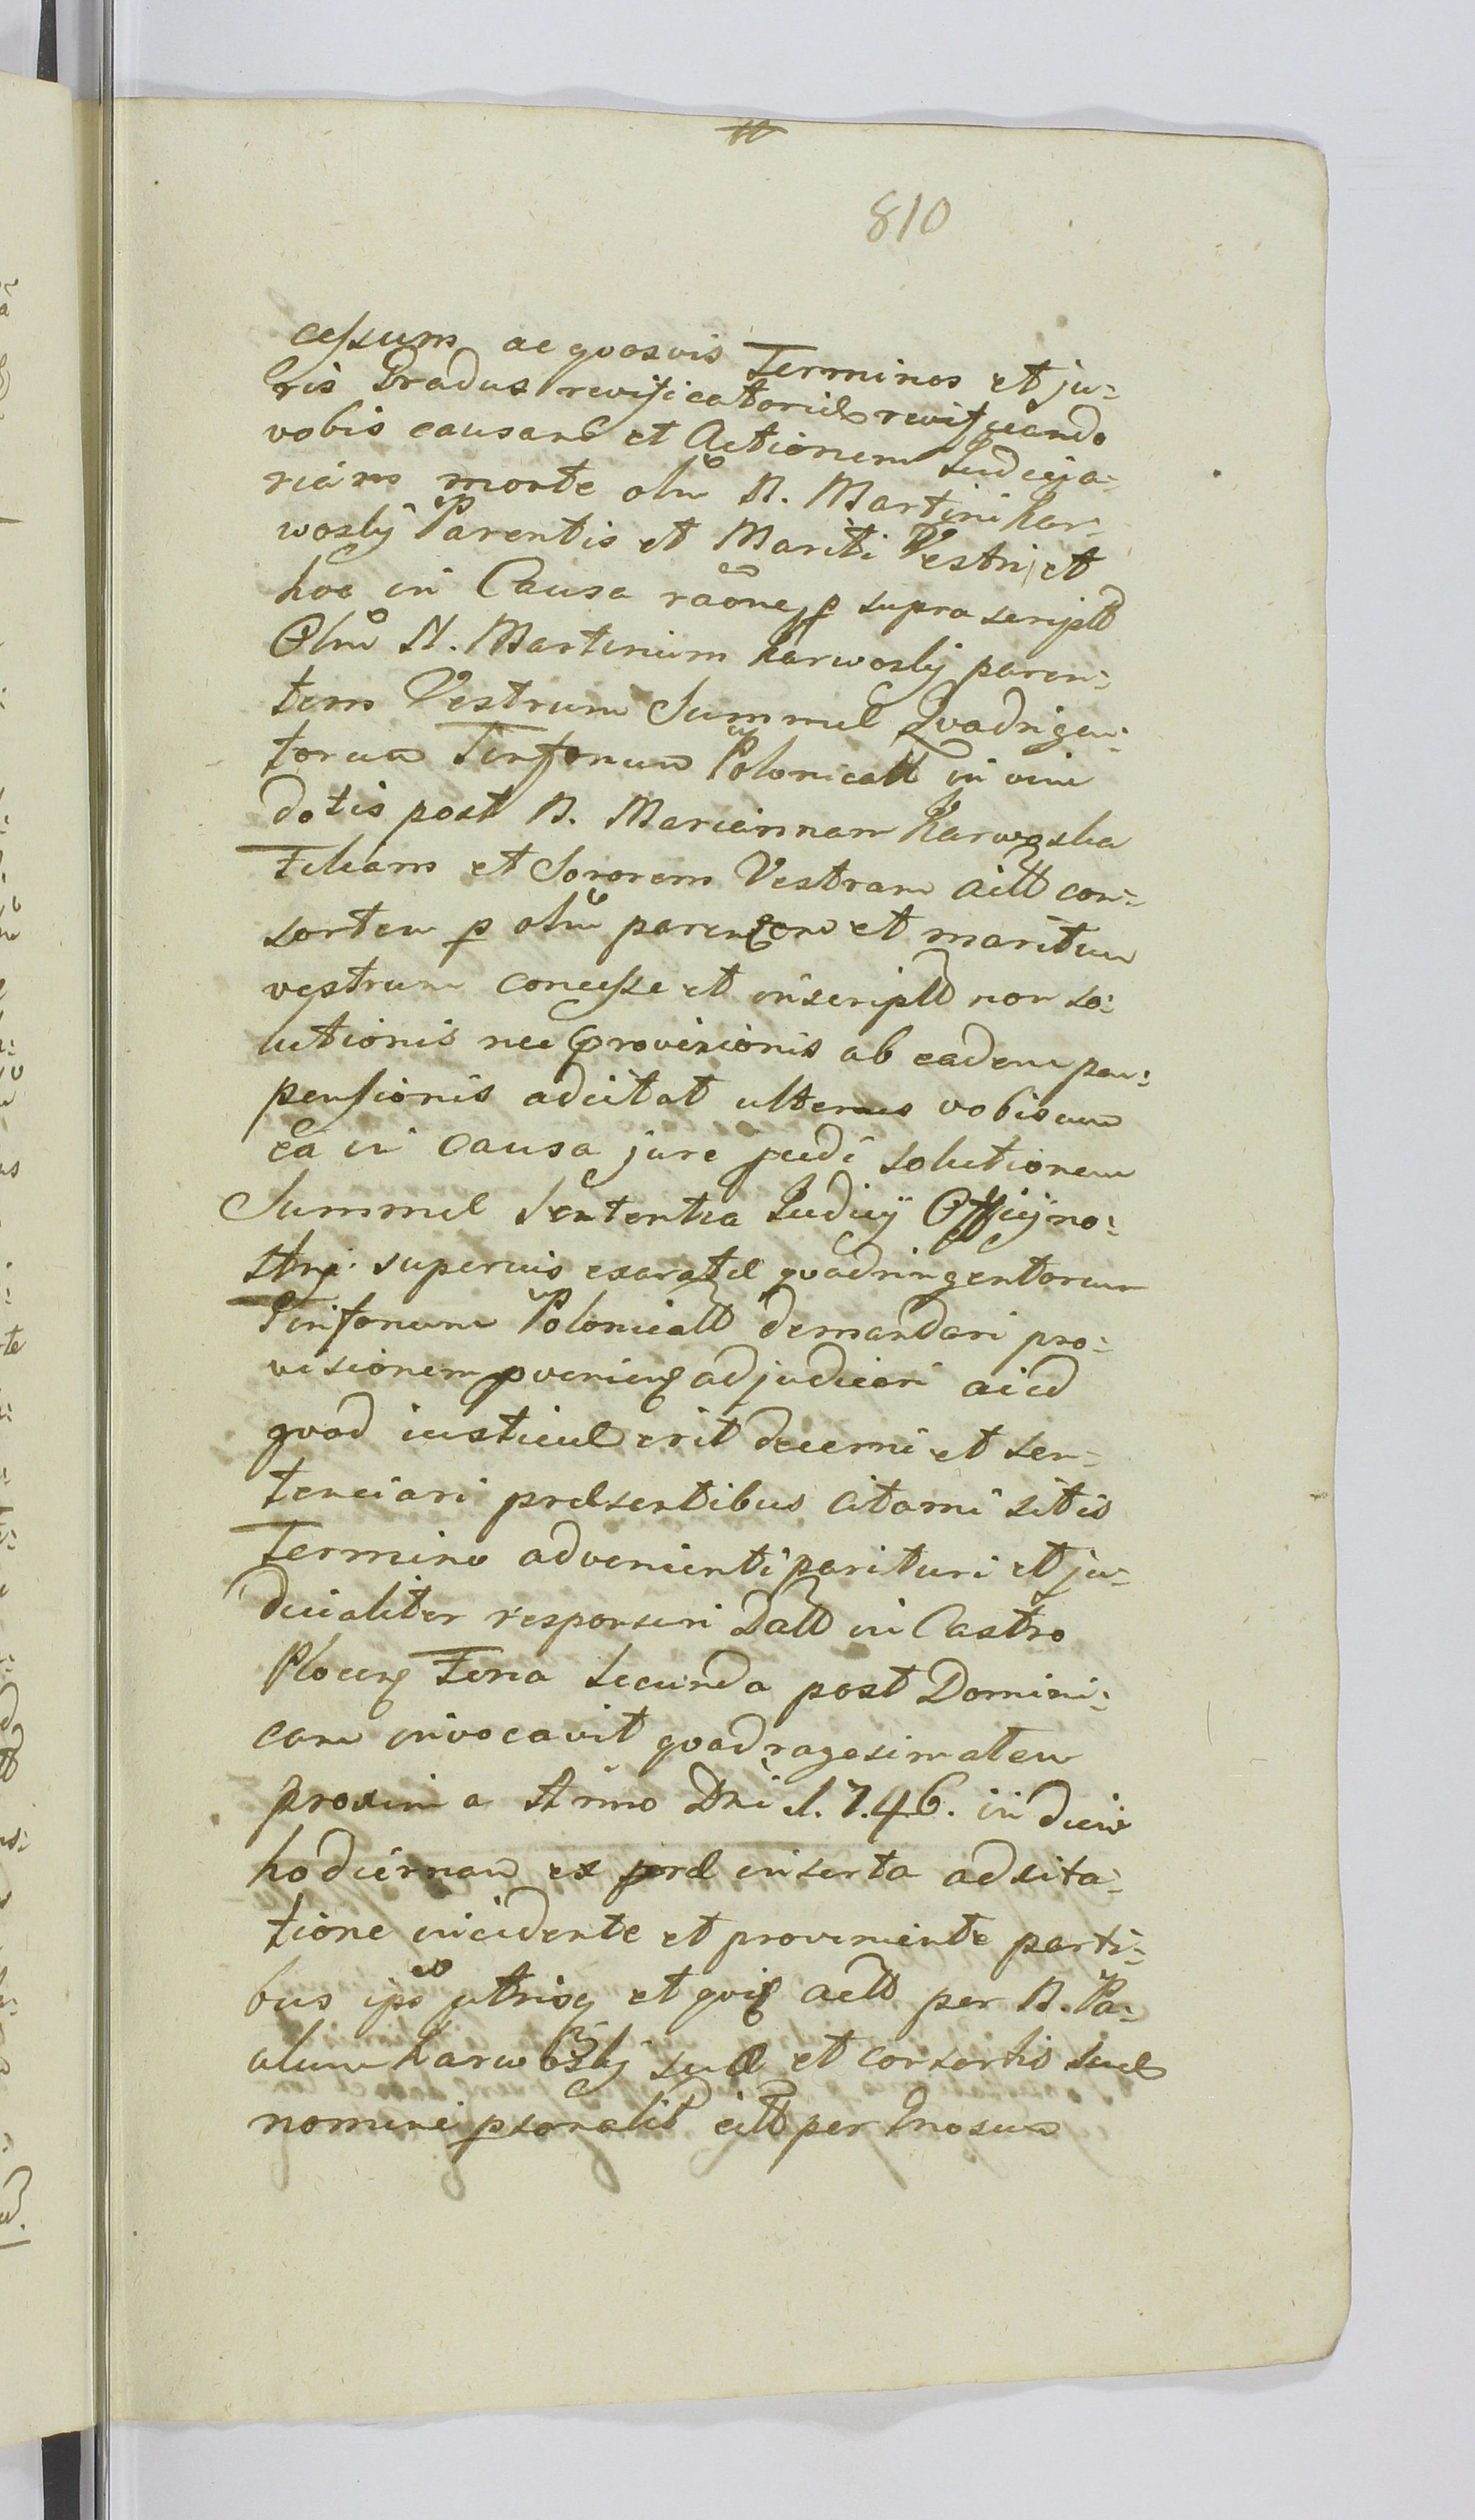 810
cessum ac quosvis Terminos et ju:
ris Gradus revificatoriæ revificando
vobis causam et Actionem Judicia:
riam morte olim N. Martini Kar:
woski Parentis et Mariti Vestri et
hoc in Causa raõne p supra script
Olim N. Martinum Karwoskij paren:
tem Vestrum Summæ Quadrigen:
torum Tinforum Polonicall in vim
dotis post N. Mariannam Karwoska
Filiam et Sororem Vestram actt con:
sortem p olim parentem et maritum
vestrum concesse et inscriptt non so:
lutionis nec provisionis ab eadem pen:
pensionis adcitat ulterius vobiscum
ea in causa jure pudi solutionem
Summæ Sententia Judicij Officij no:
stri superius exaratæ quadringentorum
Tinforum Polonicall demandari pro:
visionem pvenien adjudicari aicd
quod iusticiæ erit decerni et sen:
tenciari præsentibus citami sitis
Termino advenienti parituri et ju:
dicialiter responsuri Datt in Castro
Plocen Feria Secunda post Domini:
cam invocavit quadragesimatem
proxima Anno Dni 1.7.46. in diem
hodiernam ex præ inserta adcita:
tione incidente et proveniente parti:
bus ips utrisq et qui actt per N. Pa:
ulum Karwoski suæ et consortis suæ
nomine psonalit citt per Gnosum